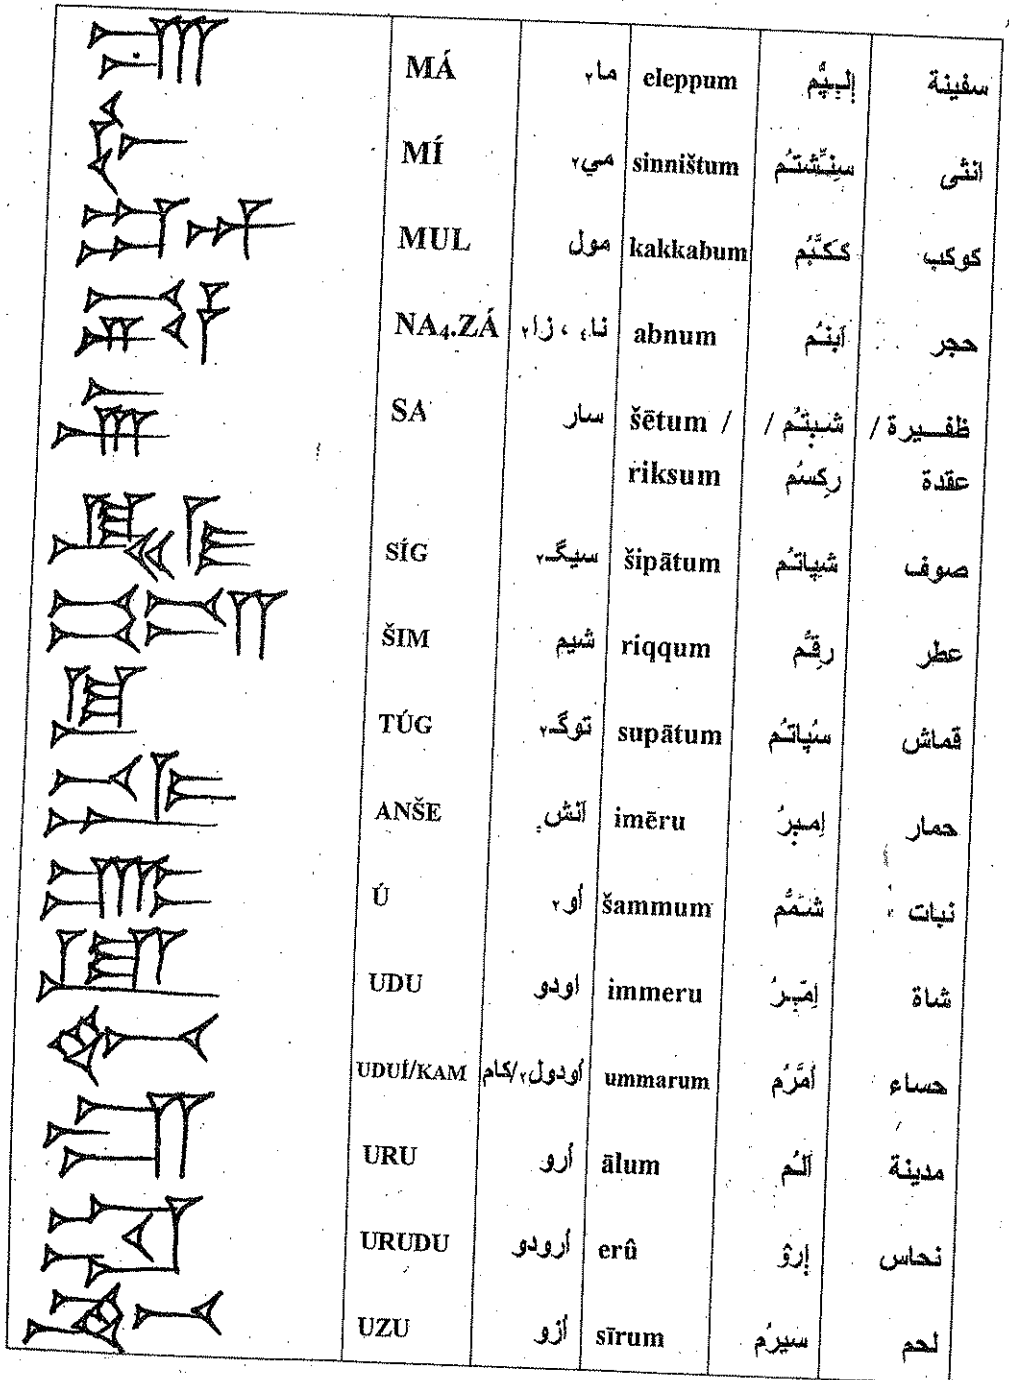 MÁ ما٢ eleppum إلـِپـُّم سفينة
MÍ مي٢ sinništum سِنـِّشتـُم انثى
MUL مول kakkabum كـَكـَّبُم كوكب
NA₄.ZÁ نا٤ ، زا٢ abnum اَبنـُم حجر
SA سار šētum / شـبـٖتـُم / ظفـــيرة /
riksum رِكسُم عقدة
SÍG سيگـ٢ šipātum شـِپاتـُم صوف
ŠIM شيم riqqum رِقـُّم عطر
TÚG توگـ٢ supātum سـُپاتـُم قماش
ANŠE اَنش imēru اِمـٖرُ حمار
Ú أو٢ šammum شـَمُّم نبات
UDU اودو immeru اِمّـٖرُ شاة
UDUÍ/KAM أودول٢/كام ummarum اُمَّرُم حساء
URU أرو ālum آلـُم مدينة
URUDU أرودو erû إرۇ نحاس
UZU أزو sīrum سيرُم لحم